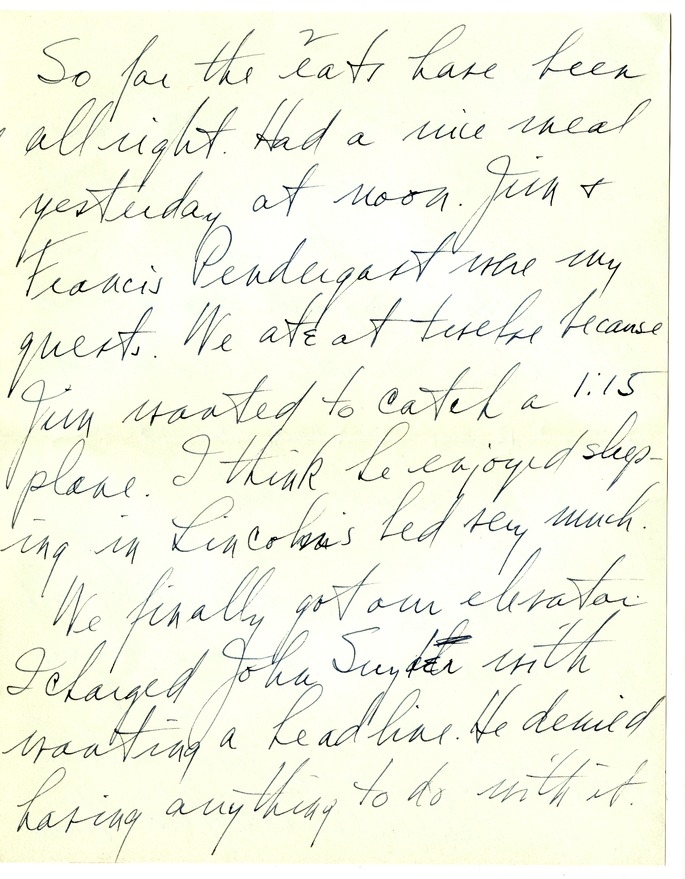 2
So far the "eats have been
all right. Had a nice meal
yesterday at noon. Jim &
Francis Pendergast were my
guests. We ate at twelve because
Jim wanted to catch a 1:15
plane. I think he enjoyed sleep-
ing in Lincoln's bed very much.
We finally got our elevator.
I charged John Snyder with
wanting a headline. He denied
having anything to do with it.